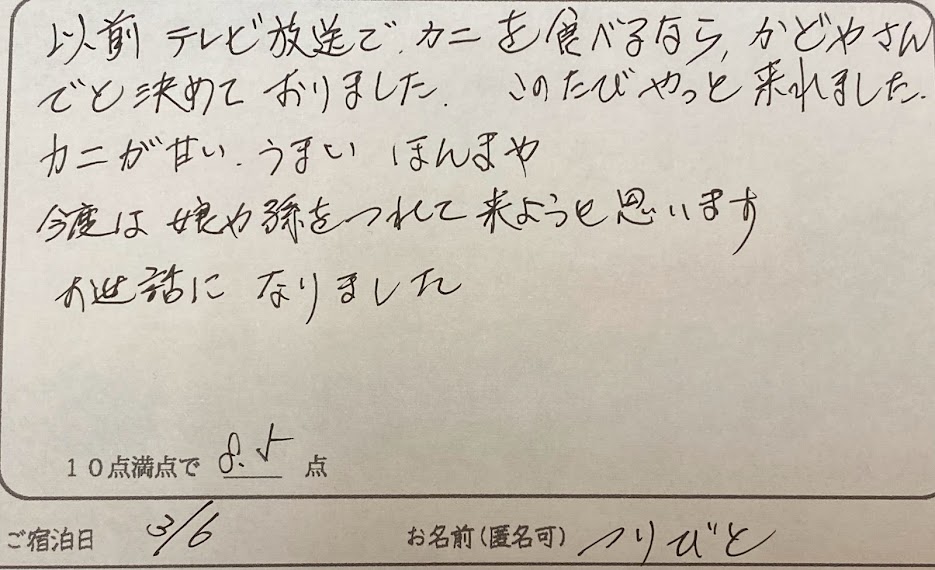 以前 テレビ放送で、カニを食べるなら、かどやさん
でと決めて おりました. このたびやっと来れました.
カニが甘い、うまい ほんまや
今度は 娘や孫をつれて来ようと思います
お世話に なりました
10点満点で 8.5 点
ご宿泊日 3/6 お名前(匿名可) つりびと